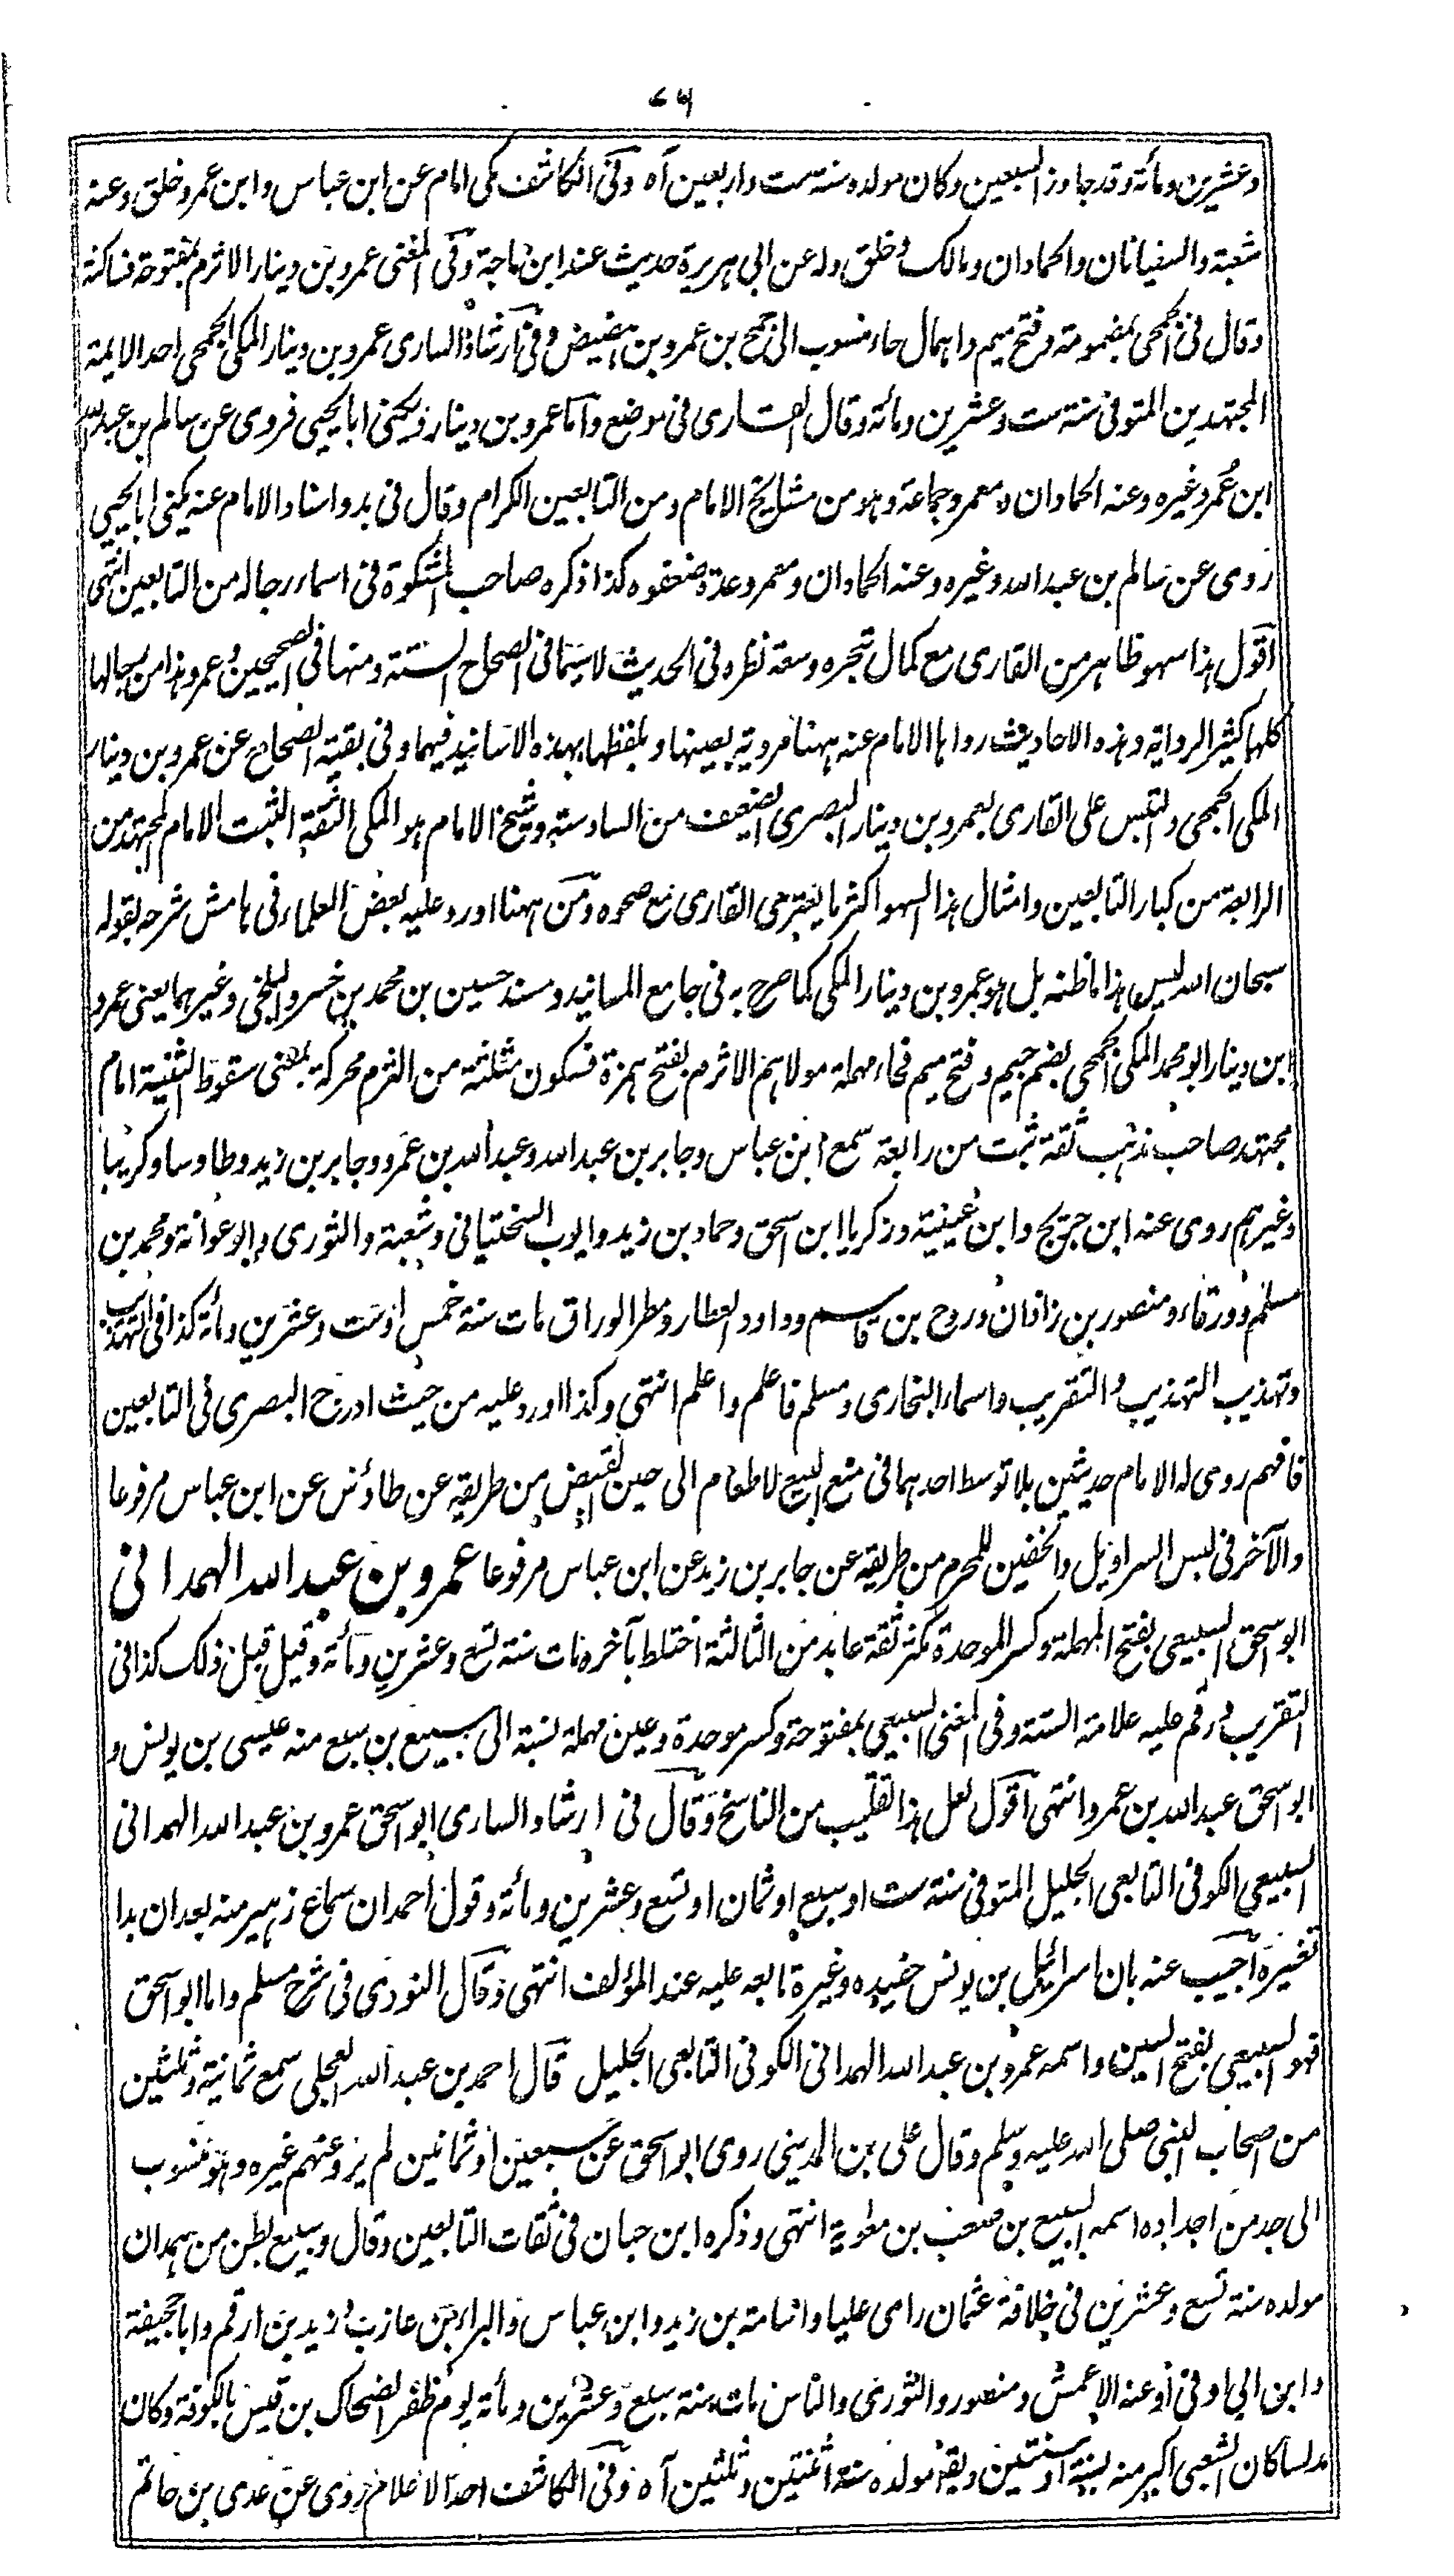 ٧٦
وعشرين ومائة وقد جاوز السبعين وكان مولده سنة ست واربعين آه وفى الكاشف مكى امام عن ابن عباس وابن عمرو خلق وعنه
شعبة والسفيانان والحمادان ومالك وخلق وله عن ابى هريرة حديث عند ابن ماجة وفى المغنى عمرو بن دينار الاثرم بمفتوحة فساكنة
وقال فى الجمحى بمضمومة وفتح ميم واهمال حاء منسوب الى جمح بن عمرو بن هصيص وفى ارشاد السارى عمرو بن دينار المكى الجمحى احد الايمة
المجتهدين المتوفى سنة ست وعشرين ومائة وقال القارى فى موضع واما عمرو بن دينار ويكنى ابا يحيى فروى عن سالم بن عبد الله
ابن عمر وغيره وعنه الحمادان ومعمر وجماعة وهو من مشايخ الامام ومن التابعين الكرام وقال فى بدو اسناد الامام عنه يكنى ابا يحيى
روى عن سالم بن عبد الله وغيره وعنه الحمادان ومعمر وعدة ضعفوه كذا ذكره صاحب المشكوة فى اسماء رجاله من التابعين انتهى
اقول هذا سهو ظاهر من القارى مع كمال تبحره وسعة نظره فى الحديث لا سيما فى الصحاح الستة ومنها فى الصحيحين وعمرو هذا من رجالها
كلها كثير الرواية وهذه الاحاديث رواها الامام عنه ههنا مروية بعينها وبلفظها بهذه الاسانيد فيهما وفى بقية الصحاح عن عمرو بن دينار
المكى الجمحى والتبس على القارى بعمرو بن دينار البصرى الضعيف من السادسة وشيخ الامام هو المكى الثقة الثبت الامام المجتهد من
الرابعة من كبار التابعين وامثال هذا السهو اكثر ما يعترى القارى مع صحوه ومن ههنا اورد عليه بعض العلماء فى هامش شرحه بقوله
سبحان الله ليس هذا ما ظنه بل هو عمرو بن دينار المكى كما صرح به فى جامع المسانيد ومسند حسين بن محمد بن خسرو البلخى وغيرهما يعنى عمرو
ابن دينار ابو محمد المكى الجمحى بضم جيم وفتح ميم فحاء مهملة مولاهم الاثرم بفتح همزة فسكون مثلثة من الثرم محركة بمعنى سقوط الثنية امام
مجتهد صاحب مذهب ثقة ثبت من رابعة سمع ابن عباس وجابر بن عبد الله وعبد الله بن عمرو وجابر بن زيد وطاوسا وكريبا
وغيرهم روى عنه ابن جريج وابن عيينة وزكريا ابن اسحق وحماد بن زيد وايوب السختيانى وشعبة والثورى وابو عوانة ومحمد بن
مسلم وورقاء ومنصور بن زاذان وروح بن قاسم وداود العطار ومطر الوراق مات سنة خمس او ست وعشرين ومائة كذا فى التهذيب
وتهذيب التهذيب والتقريب واسماء البخارى ومسلم فاعلم واعلم انتهى وكذا اورد عليه من حيث ادرج البصرى فى التابعين
فافهم روى له الامام حديثين بلا توسط احدهما فى منع البيع لاطعام الى حين القبض من طريقه عن طاؤس عن ابن عباس مرفوعا
والآخر فى لبس السراويل والخفين للمحرم من طريقه عن جابر بن زيد عن ابن عباس مرفوعا عمرو بن عبد الله الهمدانى
ابو اسحق السبيعى بفتح المهملة وكسر الموحدة مكثر ثقة عابد من الثالثة اختلط بآخره مات سنة تسع وعشرين ومائة وقيل قبل ذلك كذا فى
التقريب ورقم عليه علامة الستة وفى المغنى السبيعى بمفتوحة وكسر موحدة وعين مهملة نسبة الى سبيع بن سبع منه عيسى بن يونس و
ابو اسحق عبد الله بن عمرو انتهى اقول لعل هذا القليب من الناسخ وقال فى ارشاد السارى ابو اسحق عمرو بن عبد الله الهمدانى
السبيعى الكوفى التابعى الجليل المتوفى سنة ست او سبع او ثمان او تسع وعشرين ومائة وقول احمد ان سماع زهير منه بعد ان بدا
تغيره اجيب عنه بان اسرائيل بن يونس حفيده وغيره تابعه عليه عند المؤلف انتهى وقال النووى فى شرح مسلم واما ابو اسحق
فهو السبيعى بفتح السين واسمه عمرو بن عبد الله الهمدانى الكوفى التابعى الجليل قال احمد بن عبد الله العجلى سمع ثمانية وثلثين
من اصحاب النبى صلى الله عليه وسلم وقال على بن المدينى روى ابو اسحق عن سبعين او ثمانين لم يرو عنهم غيره وهو منسوب
الى جد من اجداده اسمه السبيع بن صعب بن معوية انتهى وذكره ابن حبان فى ثقات التابعين وقال وسبيع بطن من همدان
مولده سنة تسع وعشرين فى خلافة عثمان راى عليا واسامة بن زيد وابن عباس والبراء بن عازب وزيد بن ارقم وابا جحيفة
وابن ابى اوفى وعنه الاعمش ومنصور والثورى والناس مات سنة سبع وعشرين ومائة يوم ظفر الضحاك بن قيس بالكوفة وكان
مدلسا كان الشعبى اكبر منه بسنة او سنتين ويقال مولده سنة اثنتين وثلثين آه وفى الكاشف احد الاعلام روى عن عدى بن حاتم